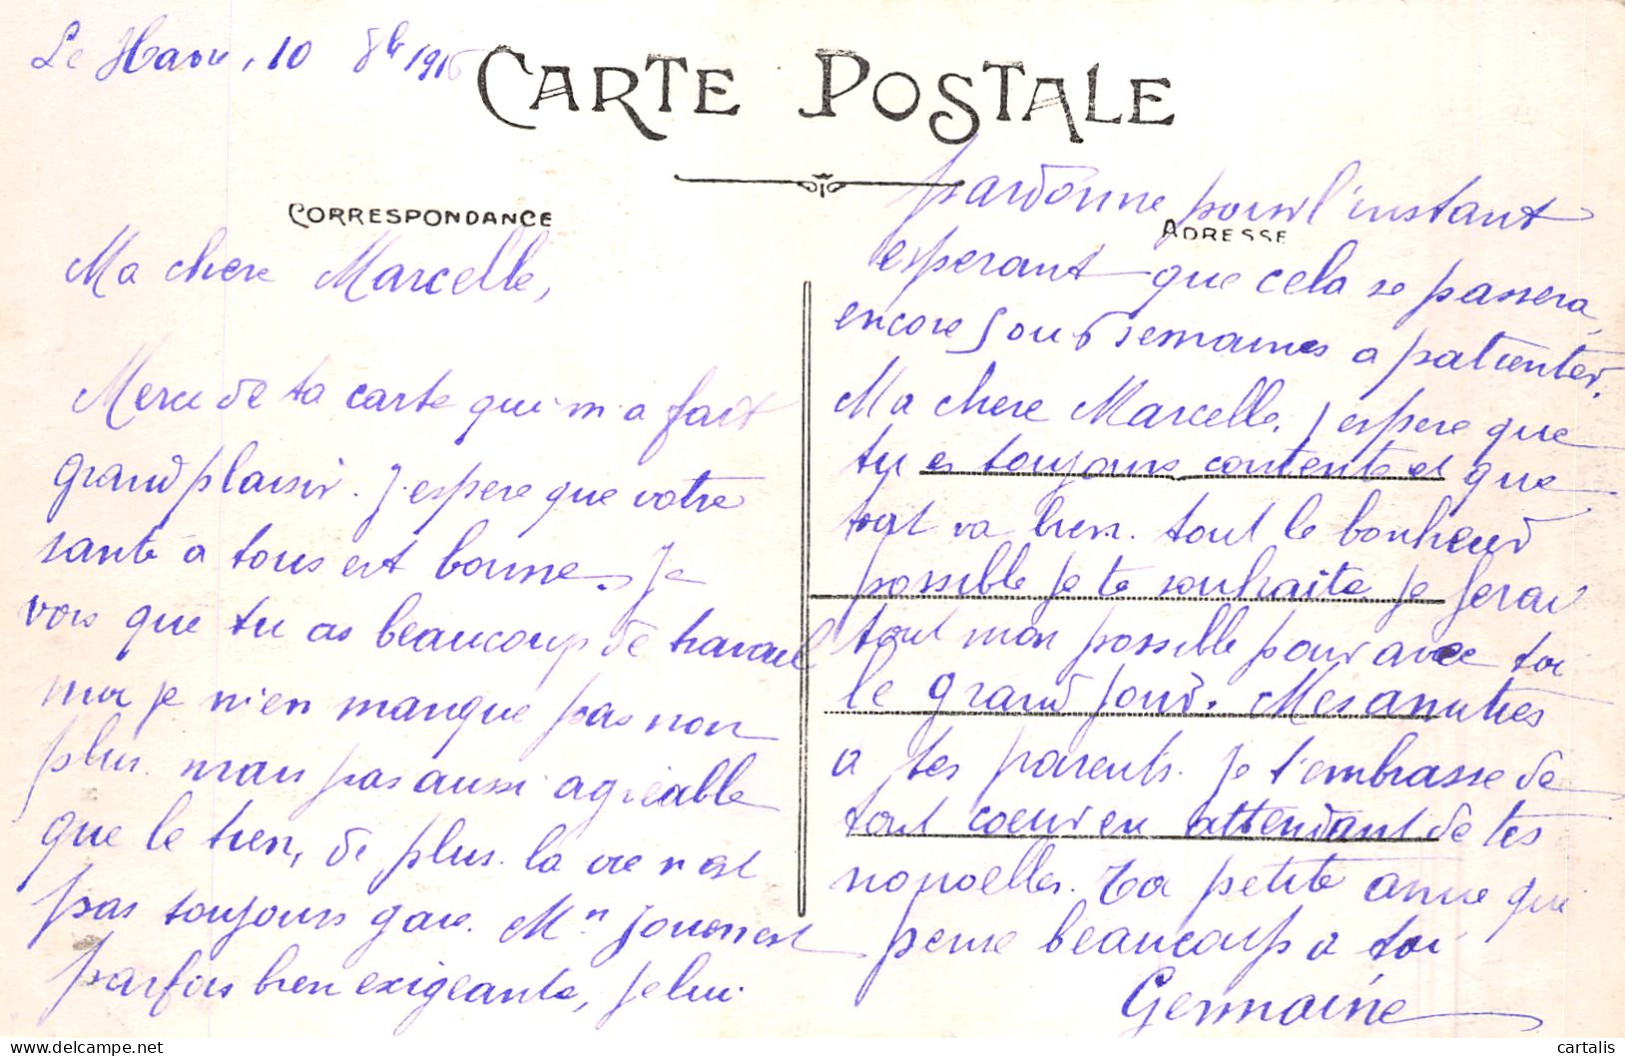 Le Havre, 10 8bre 1916
CARTE POSTALE
CORRESPONDANCE
Ma chere Marcelle,
Merci de ta carte qui m'a fait
grand plaisir. J'espere que votre
santé à tous est bonne. Je
vois que tu as beaucoup de travail
moi je n'en manque pas non
plus. mais pas aussi agréable
que le tien, de plus la vie n'est
pas toujours gaie. Mme est
parfois bien exigeante, je lui
pardonne pour l'instant
ADRESSE
esperant que cela se passera,
encore 5 ou 6 semaines a patienter.
Ma chere Marcelle, j'espere que
tu es toujours contente et que
tout va bien. tout le bonheur
possible je te souhaite je ferai
tout mon possible pour avec toi
le grand jour. Mes amitiés
a tes parents. Je t'embrasse de
tout coeur en attendant de tes
nouvelles. Ta petite amie qui
pense beaucoup a toi
Germaine
cartalis